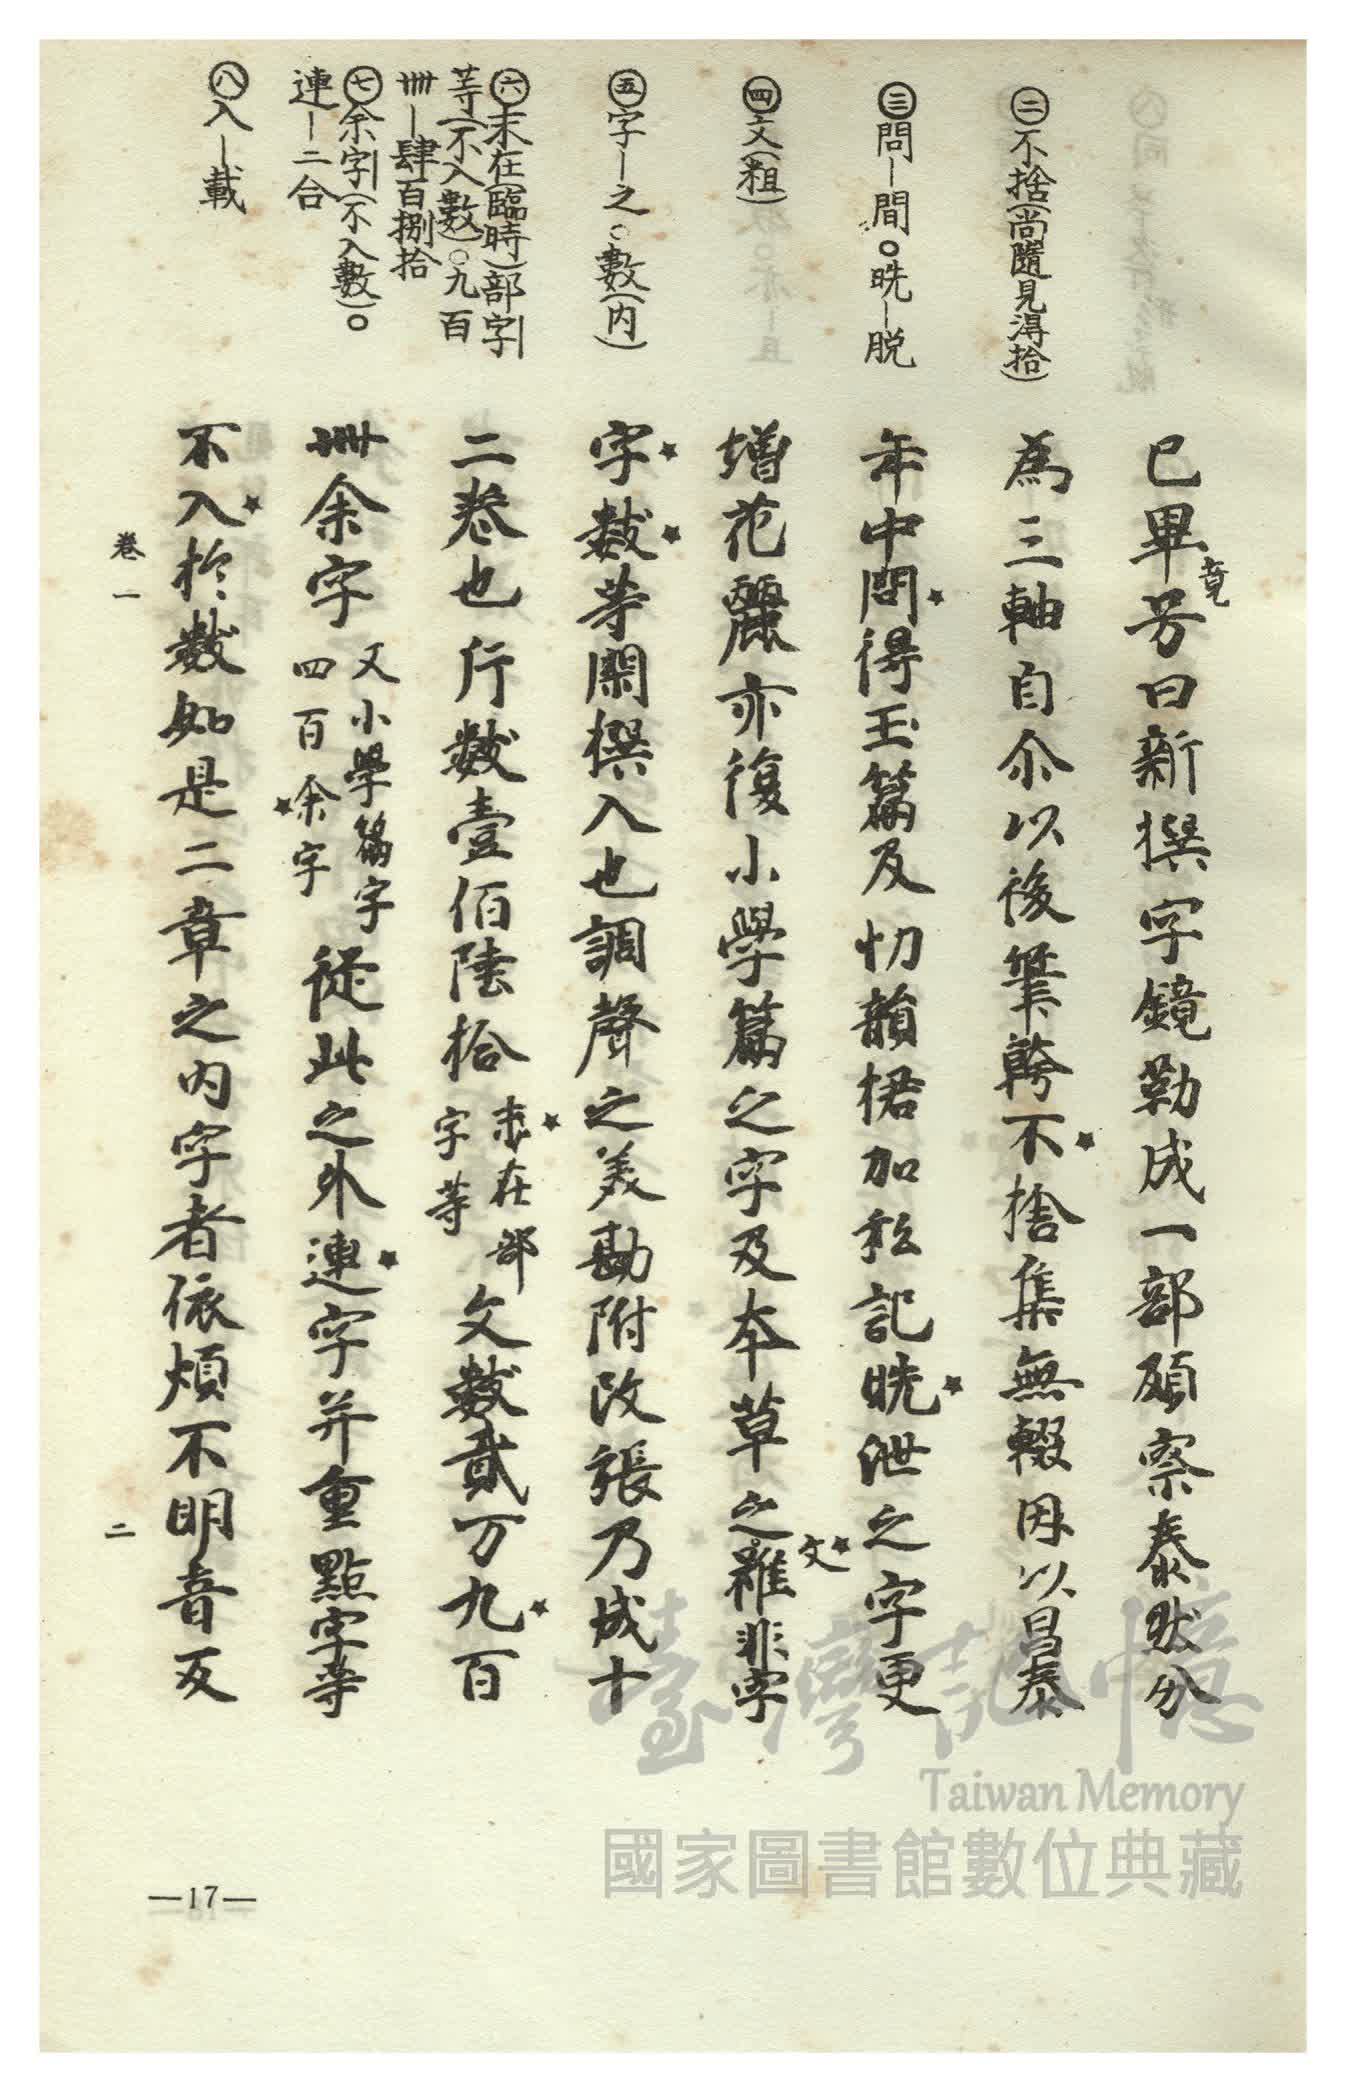 ㊁不捨(尚隨見得拾)
㊂問—間〇晄—脱
㊃文(粗)
㊄字—之〇數(内)
㊅末在(臨時)部字
等(不入數)〇九百
卌—肆百捌拾
㊆余字(不入數)〇
連—二合
㊇入—載
已畢号曰新撰字鏡勒成一部頗察泰然分
竟
為三軸自尒以後筆幹不捨集無輟因以昌泰
年中問得玉篇及切韻捃加私記晄泄之字更
増花麗亦復小學篇之字及本草之文雖非字
字數等閑撰入也調聲之美勘附改張乃成十
二巻也片數壹佰陸拾末在部字等文數貳万九百
卌余字又小學篇字四百余字從此之外連字并重點字等
不入於數如是二章之内字者依煩不明音反
巻一
二
—17—
臺灣記憶
Taiwan Memory
國家圖書館數位典藏